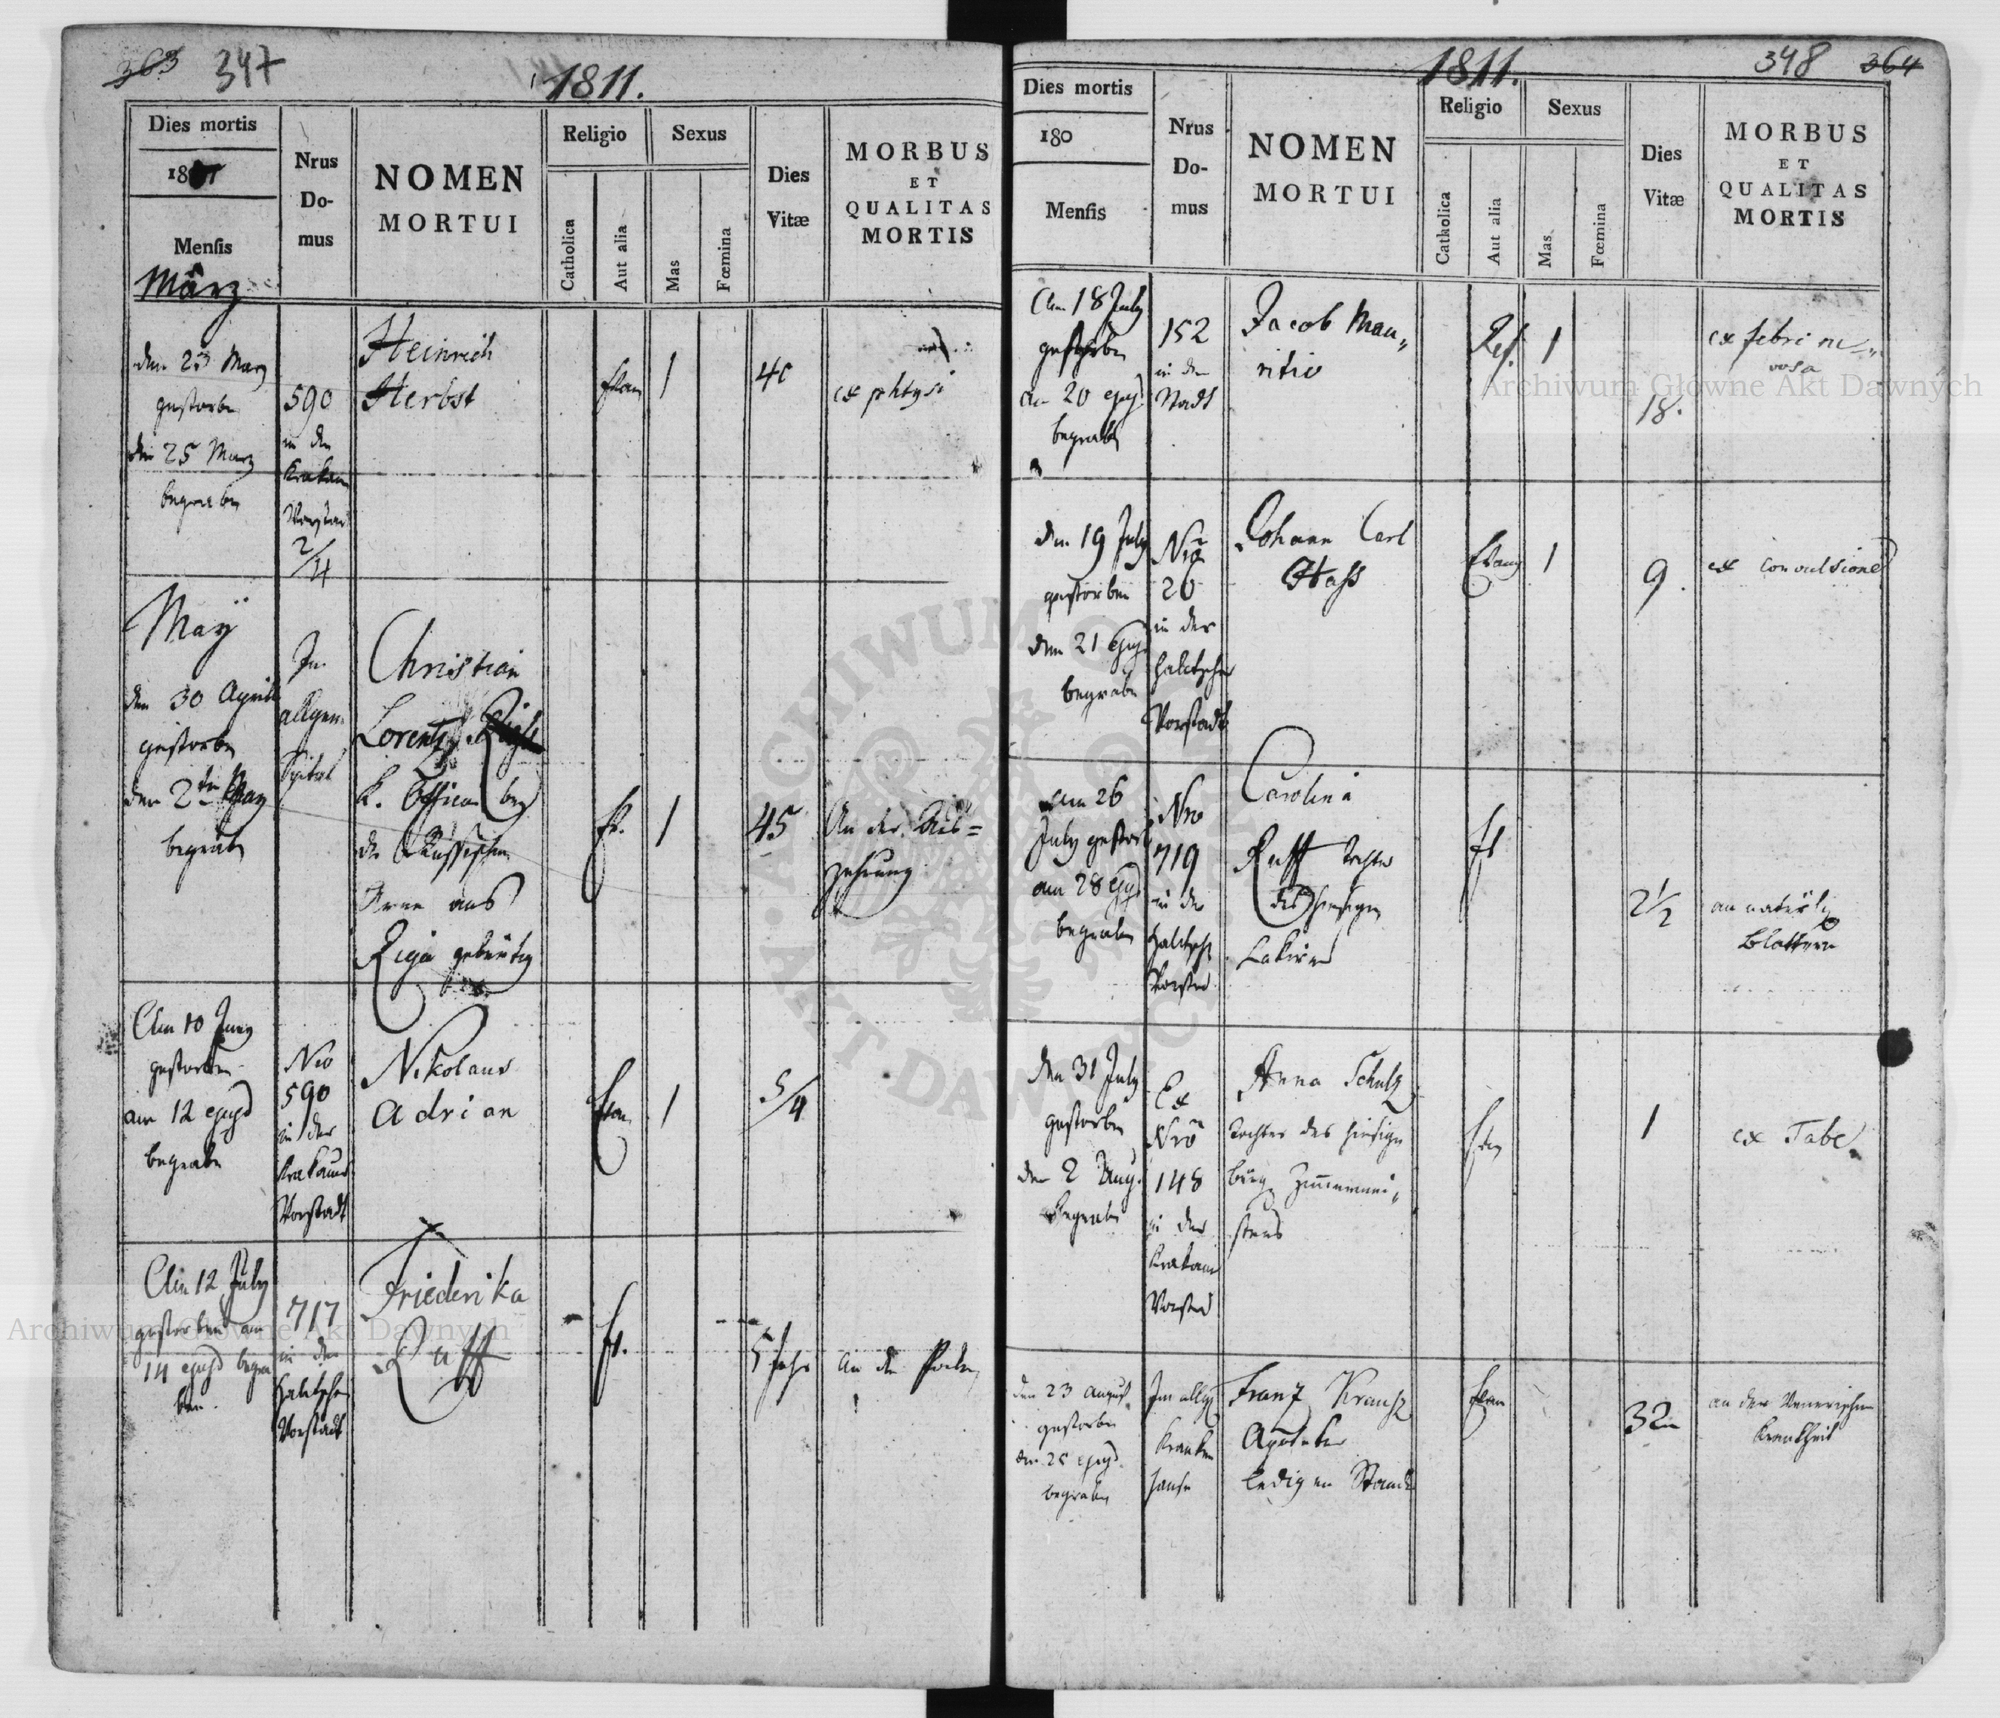 363 347
1811.
Dies mortis
Nrus
Do-
mus
NOMEN
MORTUI
Religio
Sexus
Dies
Vitæ
MORBUS
ET
QUALITAS
MORTIS
Mensis
Catholica
Aut alia
Mas
Fœmina
März
den 23 März
gestorben
den 25 März
begraben
590
in der
Krakau
Vorstad
2/4
Heinrich
Herbst
Evan
1
40
ex phtysi
May
den 30 April
gestorben
den 2ten May
begraben
Im
allgem.
Spital
Christian
Lorentz
k. Officier bey
der Russischen
Armee aus
Riga gebürtig
Ev.
1
45
An der Aus=
zehrung
Am 10 Juny
gestorben
am 12 ejusd
begraben
Nro
590
in der
Krakauer
Vorstadt
Nikolaus
Adrian
Evan
1
5/4
Am 12 July
gestorben am
14 ejusd begra
ben.
717
in der
Halitscher
Vorstadt
Friederika
Ruff
Ev.
5 Jahr
An den Pocken
1811.
348 364
Dies mortis
180
Mensis
Nrus
Do-
mus
NOMEN
MORTUI
Religio
Sexus
Catholica
Aut alia
Mas
Fœmina
Dies
Vitæ
MORBUS
ET
QUALITAS
MORTIS
Am 18 July
gestorben
am 20 ejusd
begraben
152
in der
Stadt
Jacob Mau„
ritio
Ref.
1
18.
ex febri ner„
vosa
den 19 July
gestorben
den 21 ejusd
begraben
Nro
26
in der
Halitscher
Vorstadt
Johann Carl
Hass
Evang
1
9.
ex convulsione
am 26
July gestor
am 28 ejusd
begraben
Nro
719
in der
Halitsch
Vorstad
Carolina
Ruff Tochter
des hiesigen
Lakirer
Ev
2 1/2
an natürlich
Blattern
den 31 July
gestorben
den 2 Aug.
begraben
Ex
Nro
148
in der
Krakau
Vorstad
Anna Schulz
Tochter des hiesigen
bürg. Zimmermei„
sters
Ev
1
ex Tabe.
den 23 August
gestorben
den 25 ejusd.
begraben
Im allg
Kranken
hause
Franz Krausz
Apotheker
ledigen Stands
Evan
32
an der Venerischen
Krankheit
Archiwum Główne Akt Dawnych
Archiwum Główne Akt Dawnych